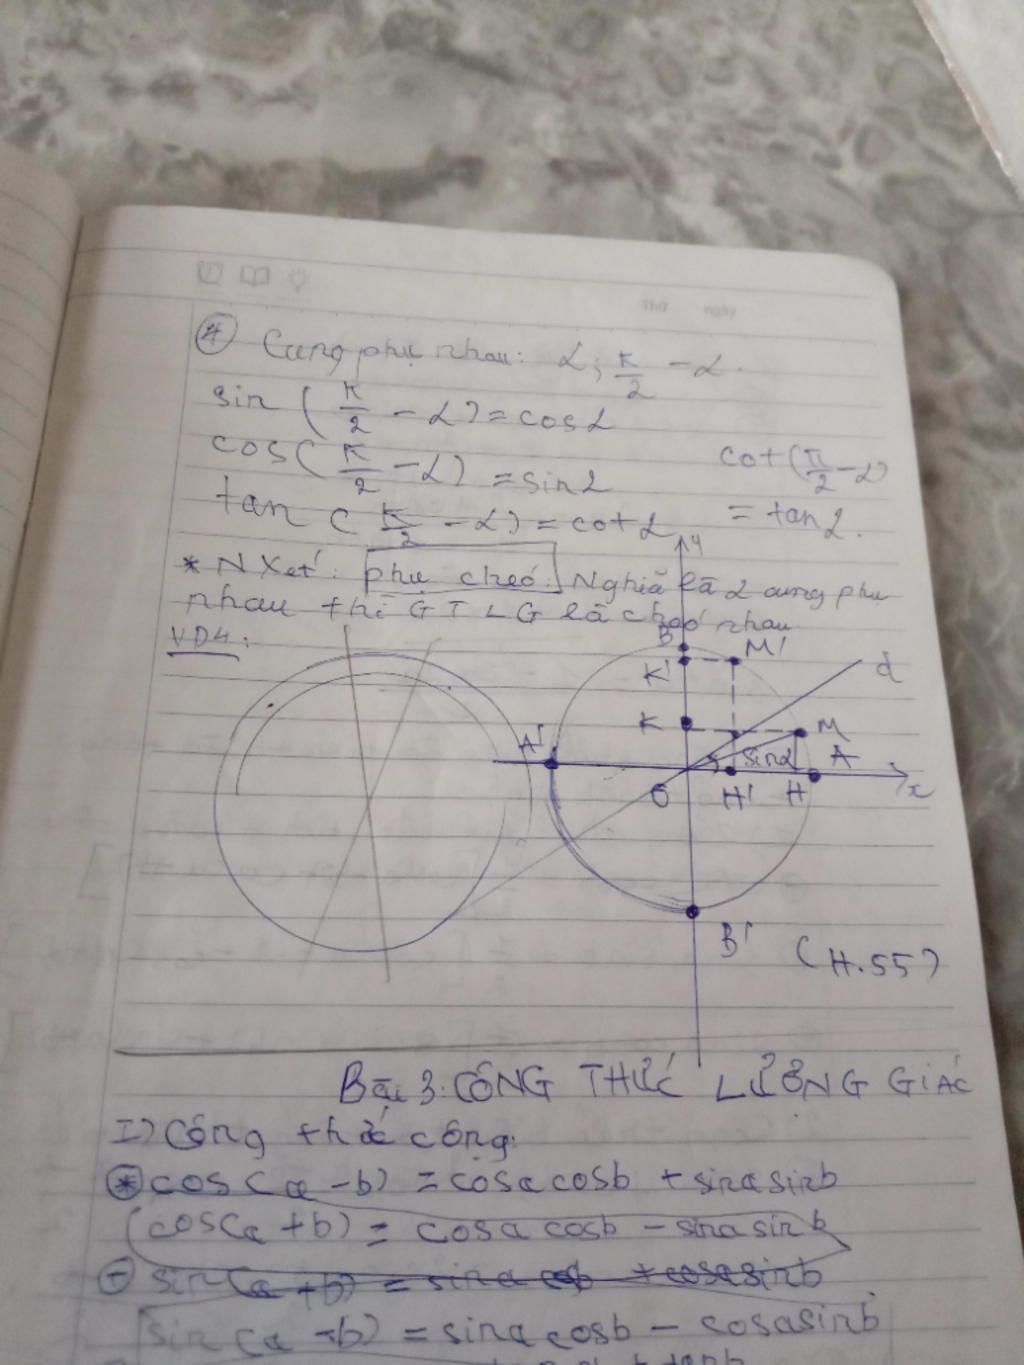 Thứ ngày
④ Cung phụ nhau: α; π/2 - α.
sin (π/2 - α) = cosα
cos (π/2 - α) = sinα
cot (π/2 - α)
tan (π/2 - α) = cotα
= tanα.
* N Xét: phụ chéo. Nghĩa là 2 cung phụ
nhau thì GTLG là chéo nhau
VD4:
y
B
M'
K'
d
K
M
A'
sinα
A
O
H'
H
x
B'
(H.55)
Bài 3: CÔNG THỨC LƯỢNG GIÁC
I) Công thức cộng:
* cos(a - b) = cosa cosb + sina sinb
(cos(a + b) = cosa cosb - sina sinb
sin(a + b) = sina cosb + cosa sinb
sin(a - b) = sina cosb - cosa sinb